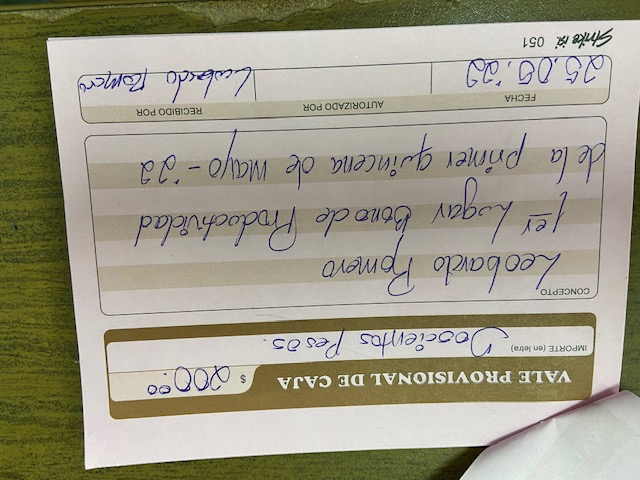 VALE PROVISIONAL DE CAJA
$ 200.00
IMPORTE (en letra)
Doscientos Pesos.
CONCEPTO
Leobardo Romero
1er Lugar Bono de Productividad
de la primer quincena de mayo-'22
FECHA
AUTORIZADO POR
RECIBIDO POR
25.05.'22
Leobardo Romero
051